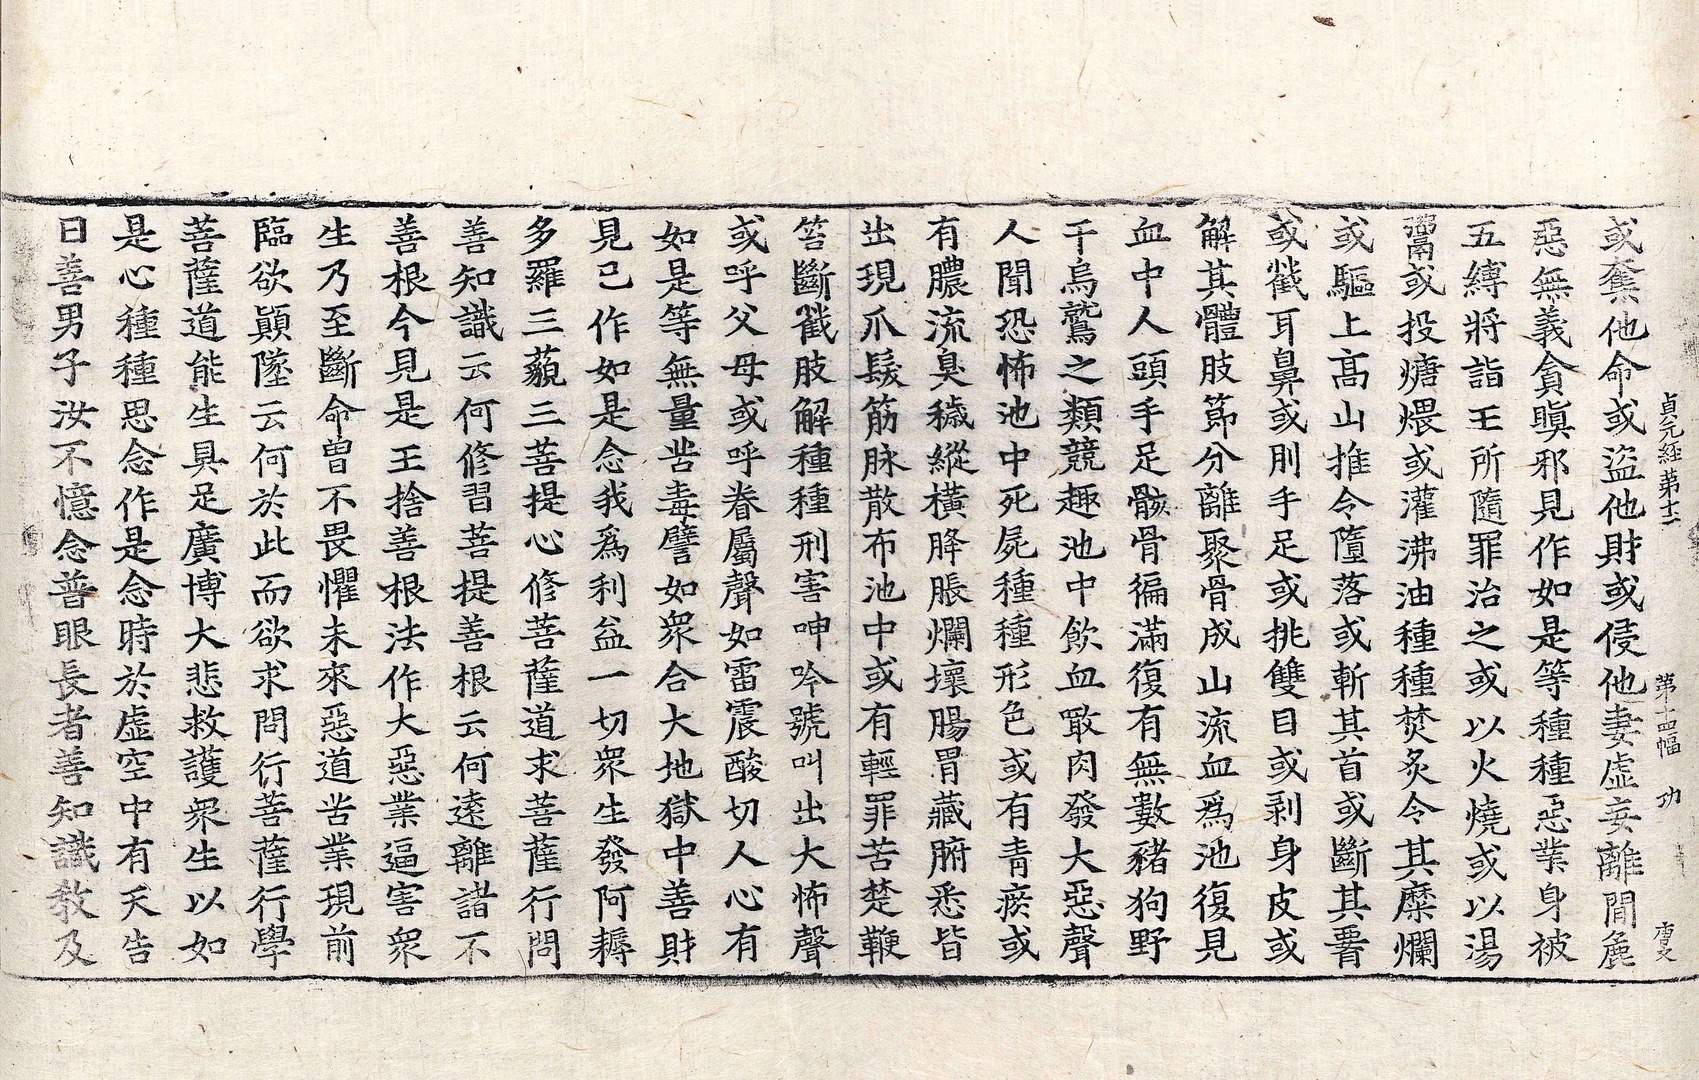 貞元經第十一　第十四幅　功
或奪他命或盜他財或侵他妻虛妄離間麁
惡無義貪瞋邪見作如是等種種惡業身被
五縛將詣王所隨罪治之或以火燒或以湯
䰞或投煻煨或灌沸油種種焚炙令其糜爛
或驅上高山推令墮落或斬其首或斷其脣
或截耳鼻或刖手足或挑雙目或剥身皮或
解其體肢節分離聚骨成山流血爲池復見
血中人頭手足骸骨徧滿復有無數豬狗野
干烏鷲之類競趣池中飲血噉肉發大惡聲
人聞恐怖池中死屍種種形色或有青瘀或
有膿流臭穢縱橫胮脹爛壞腸胃藏腑悉皆
出現爪髮筋脉散布池中或有輕罪苦楚鞭
笞斷截肢解種種刑害呻吟號叫出大怖聲
或呼父母或呼眷屬聲如雷震酸切人心有
如是等無量苦毒譬如衆合大地獄中善財
見已作如是念我爲利益一切衆生發阿耨
多羅三藐三菩提心修菩薩道求菩薩行問
善知識云何修習菩提善根云何遠離諸不
善根今見是王捨善根法作大惡業逼害衆
生乃至斷命曾不畏懼未來惡道苦業現前
臨欲顚墜云何於此而欲求問行菩薩行學
菩薩道能生具足廣博大悲救護衆生以如
是心種種思念作是念時於虛空中有天告
曰善男子汝不憶念普眼長者善知識教及